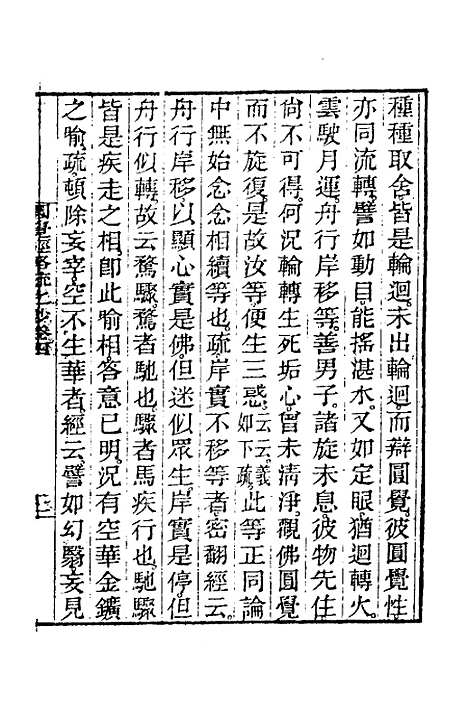 種種取舍。皆是輪迴。未出輪迴。而辯圓覺。彼圓覺性。
亦同流轉。譬如動目。能搖湛水。又如定眼。猶迴轉火。
雲駛月運。舟行岸移等。善男子。諸旋未息。彼物先住
尚不可得。何況輪轉生死垢心。曾未清淨。觀佛圓覺
而不旋復。是故汝等。便生三惑。云云。義如下疏。此等正同論
中無始念念相續等也。疏岸實不移等者。密翻經云。
舟行岸移。以顯心實是佛。但迷似眾生。岸實是停。但
舟行似轉。故云騖驟。騖者馳也。驟者馬疾行也。馳驟
皆是疾走之相。即此喻相。答意已明。況有空華金鑛
之喻。疏頓除妄宰。空不生華者。經云。譬如幻翳。妄見